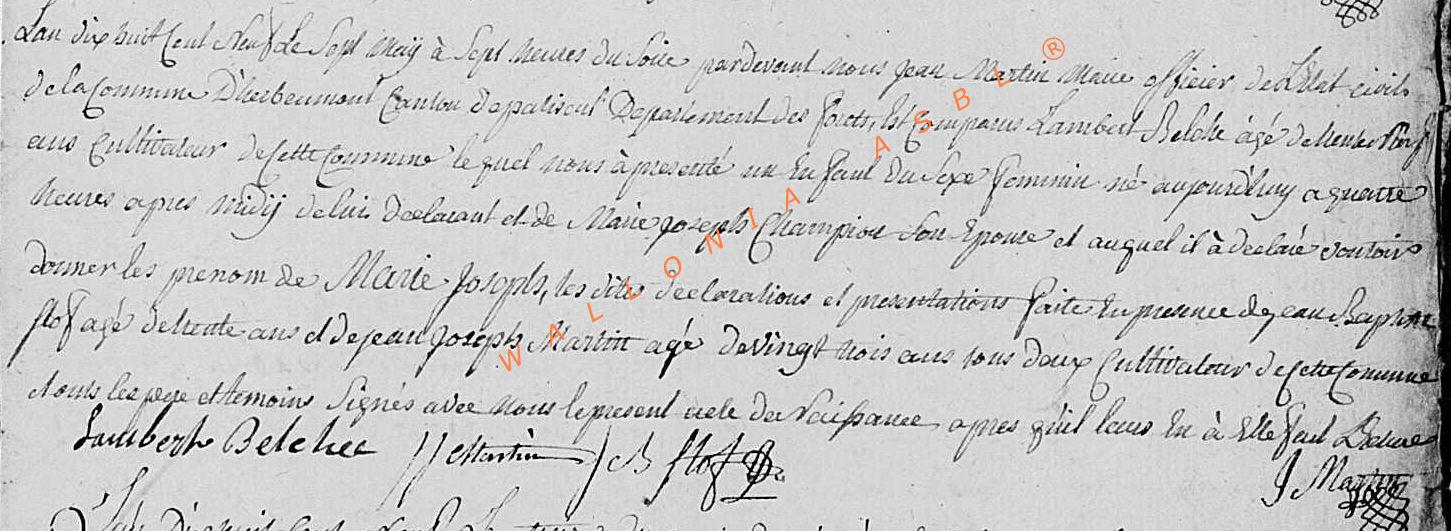 Lan dix huit Cent Neuf Le Sept Maÿ à Sept heures du Soire pardevant nous Jean Martin Maire officier de L'Etat civils
de la Commune D'herbeumont Canton de paliseul Departement des forets, Est Comparus Lambert Belche âgé de trente Neuf
ans Cultivateur de Cette Commune lequel nous à presenté un Enfant du Sexe feminin né aujourd'huy a quattre
heures apres Midÿ de lui declarant et de Marie joseph Champion Son Epouse et auquel il à declaré vouloir
donner les prenom de Marie Joseph, les dites declarations et presentations faite En presence de jean Baptiste
flof agé de trente ans et de jean joseph Martin agé de vingt trois ans tous deux Cultivateur de Cette Commune
et onts les pere et temoins Signés avec nous le present acte de Naissance apres qu'il leurs En à Etté fait Lecture
Lambert Belchee JJ Martin JB flof J Martin
WALLONIA ASBL ®